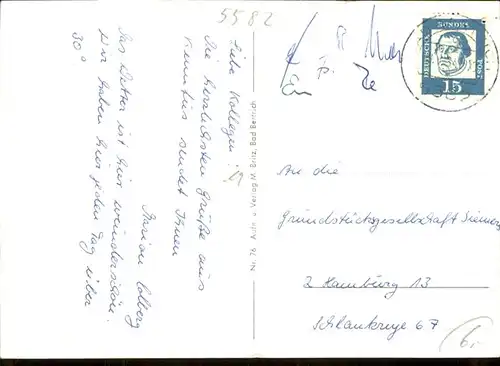 5582
Liebe Kollegen!
Die herzlichsten Grüße aus
sendet Ihnen
Marion
Das Wetter ist hier wunderschön.
Wir haben hier jeden Tag über
30°
Nr. 76
DEUTSCHE
BUNDES
POST
15
An die
Grundstücksgesellschaft
2 Hamburg 13
Schlankreye 67
6,-